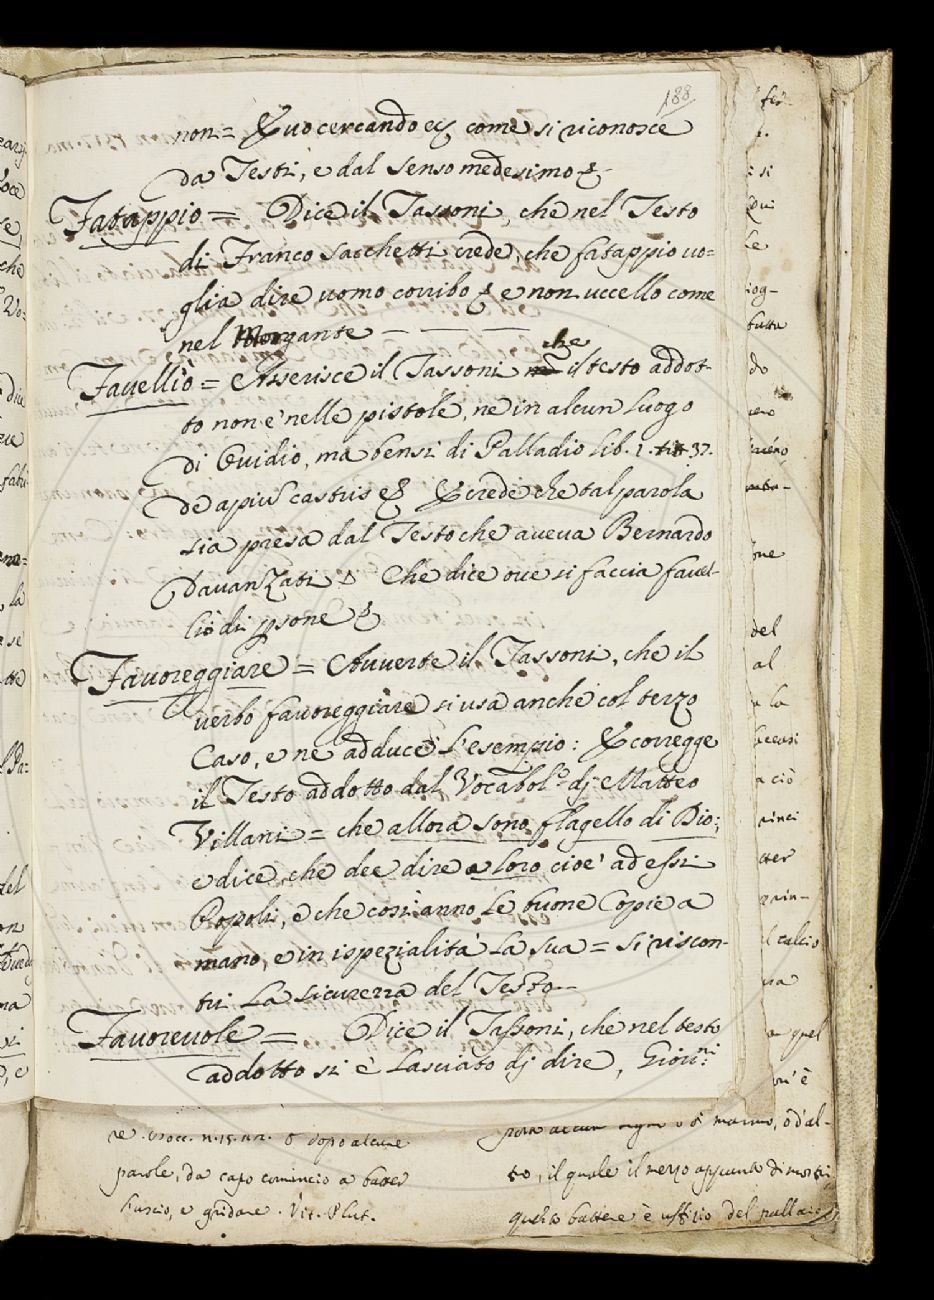 188
non = & uo cercando &c come si riconosce
da Testi, e dal senso medesimo &.
Fatappio = Dice il Tassoni, che nel Testo
di Franco Sacchetti crede, che fatappio uo=
glia dire uomo corribo & e non uccello come
nel Morgante — — —
Favellio = Asserisce il Tassoni che il testo addot-
to non è nelle pistole, ne in alcun luogo
di Ovidio, ma bensi di Palladio lib. 1. tit 37.
de apiu' castris & & crede che tal parola
sia presa dal Testo che aveva Bernardo
Davanzati Che dice ove si faccia favel-
lio di psone &
Favoreggiare = Avverte il Tassoni, che il
verbo favoreggiare si usa anche col terzo
Caso, e ne adduce l'esempio: & corregge
il Testo addotto dal Vocabol.o dj Matteo
Villani = che allora sono flagello di Dio;
e dice, che dee dire a loro cioè ad essi
Popoli, e che così anno le buone Copie a
mano, e in ispezialità la sua = si riscon-
tri la sicurezza del Testo—
Favorevole = Dice il Tassoni, che nel testo
addotto si è lasciato dj dire, Giov:ni
parole, da capo cominciò a batter
l'uscio, e gridare. Vit. Plut.
to, il quale il mezo appiunta di
questo battere è uffizio del